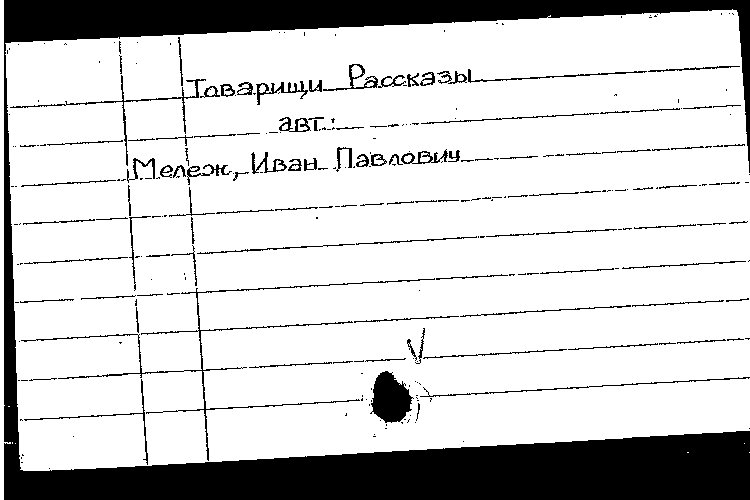 Товарищи Рассказы
авт.:
Мележ, Иван Павлович